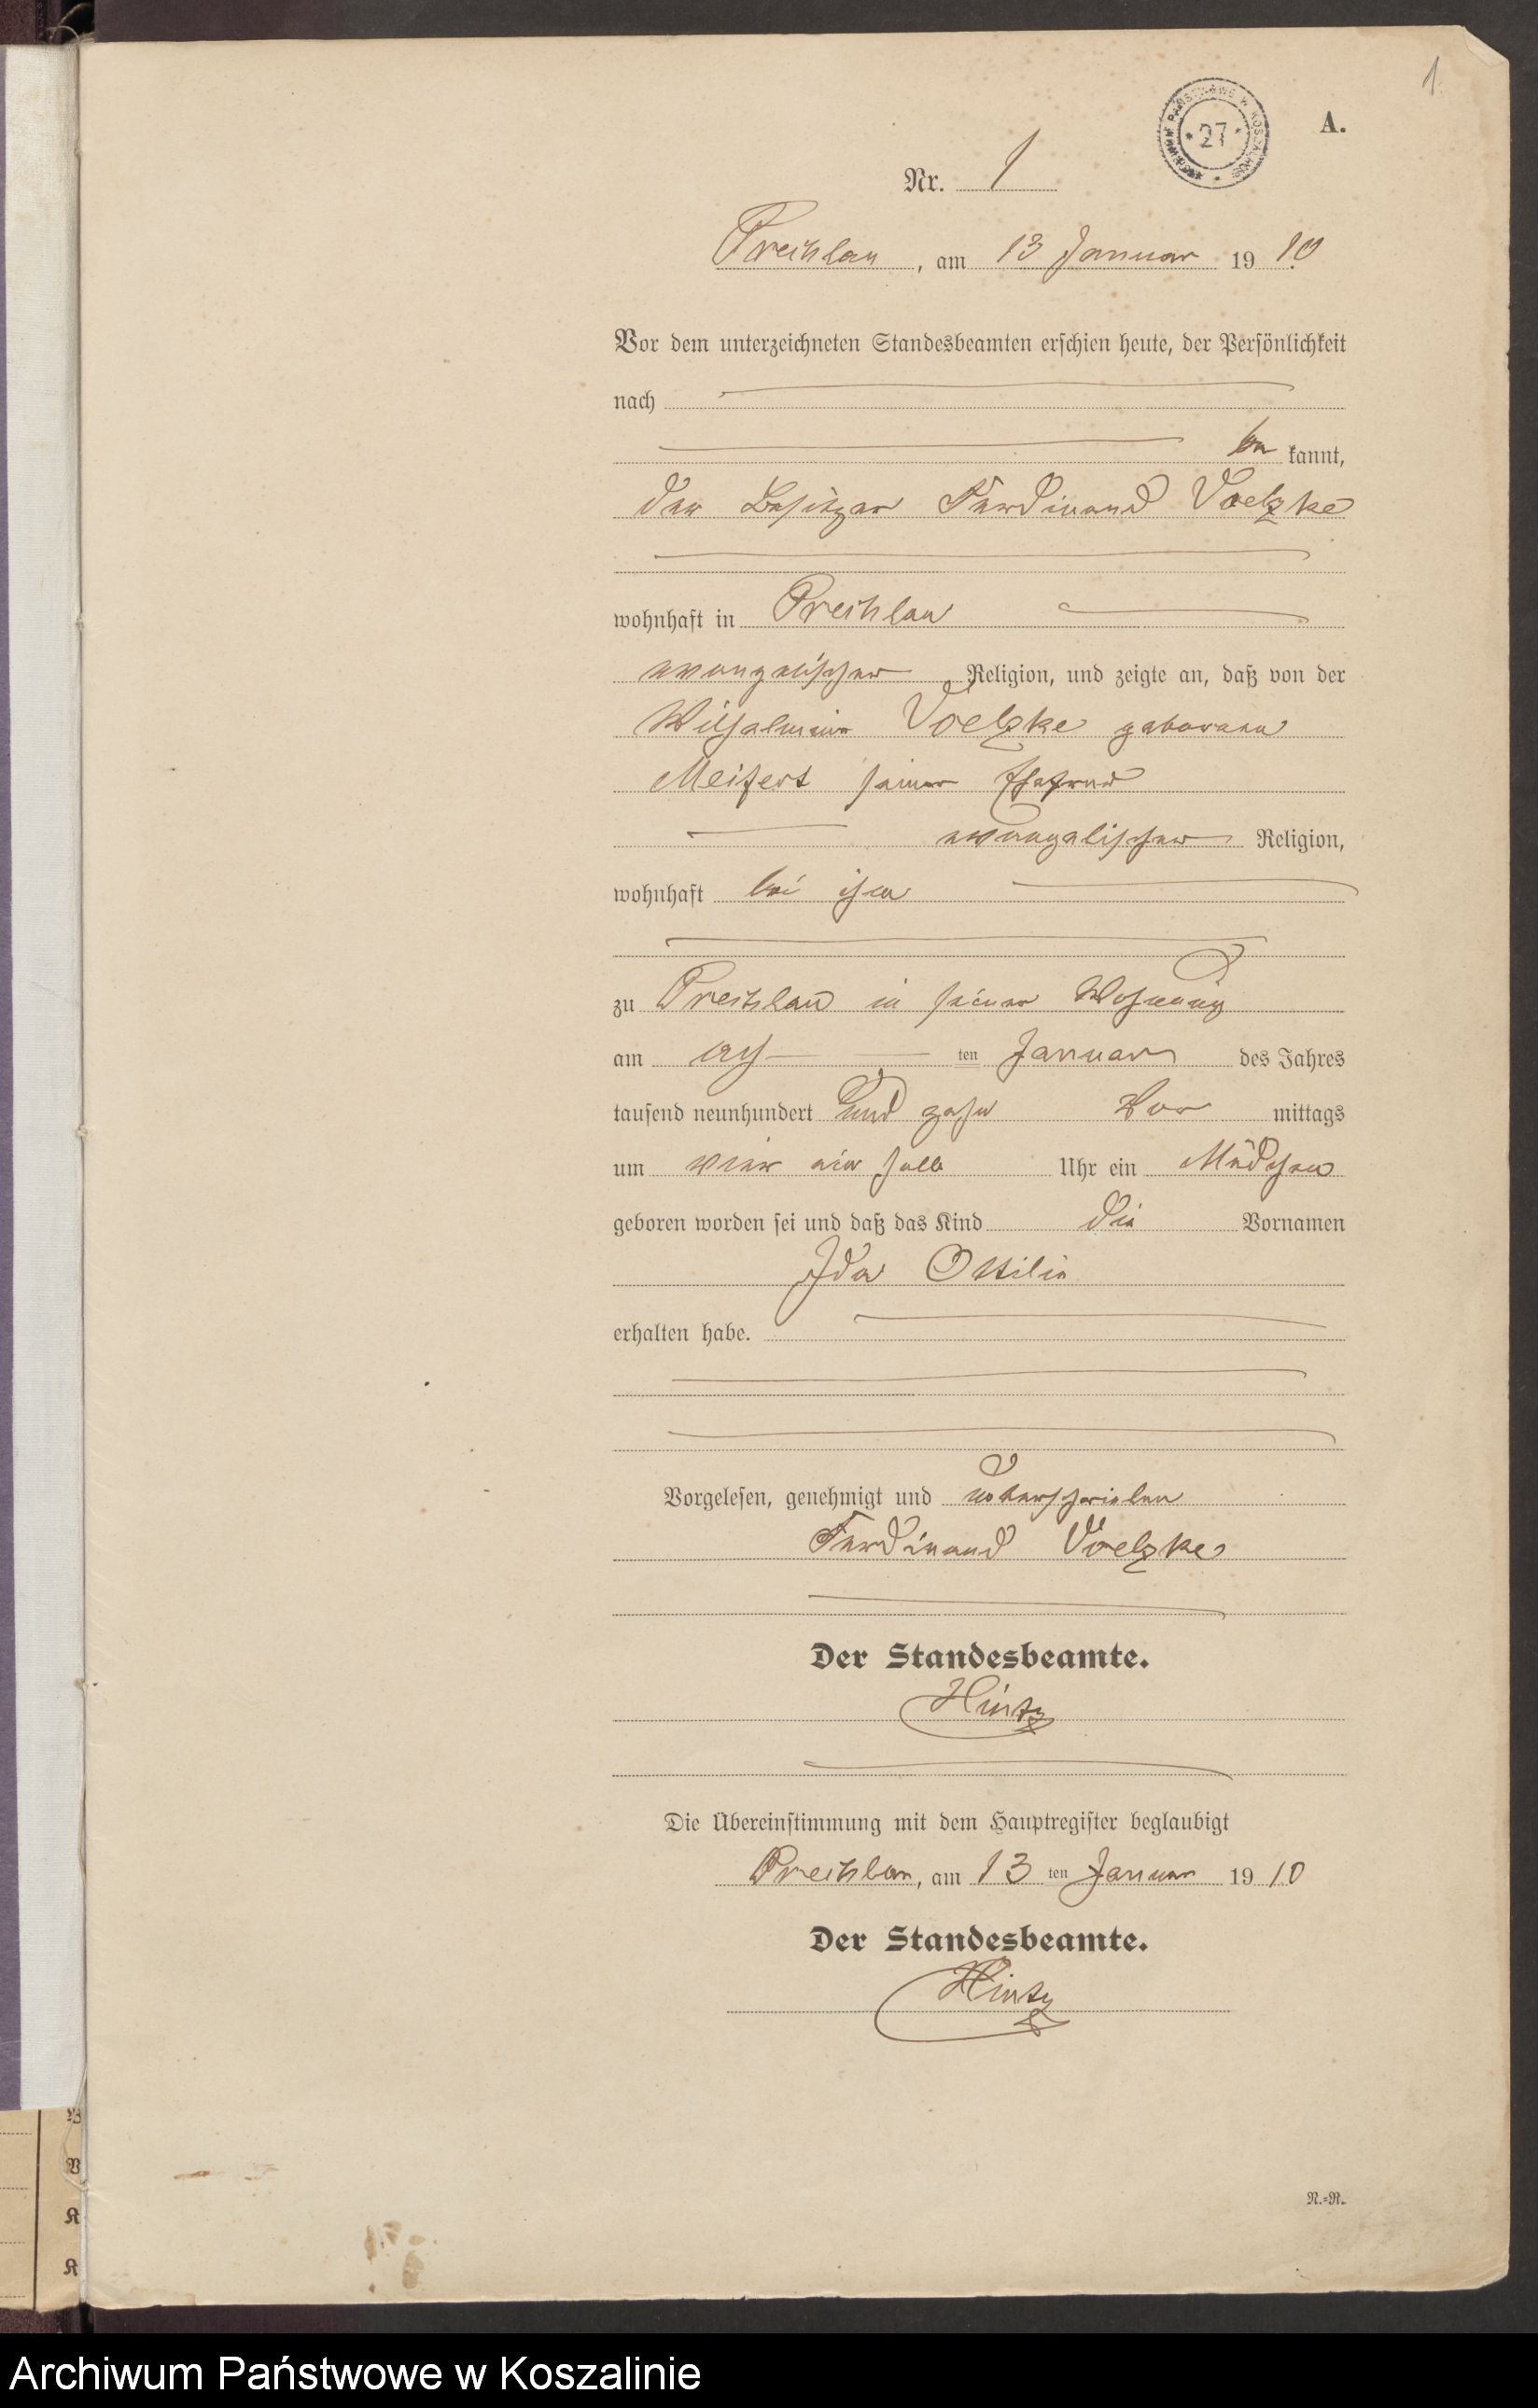 1
A.
ARCHIWUM PAŃSTWOWE W KOSZALINIE
27
Nr. 1
Prechlau, am 13 Januar 1910.
Vor dem unterzeichneten Standesbeamten erschien heute, der Persönlichkeit
nach
be kannt,
der Besitzer Ferdinand Voelzke
wohnhaft in Prechlau
evangelischer Religion, und zeigte an, daß von der
Wilhelmine Voelzke geborene
Meifert seiner Ehefrau
evangelischer Religion,
wohnhaft bei ihm
zu Prechlau in seiner Wohnung
am ach ten Januar des Jahres
tausend neunhundert und zehn Vor mittags
um vier ein halb Uhr ein Mädchen
geboren worden sei und daß das Kind die Vornamen
Ida Ottilie
erhalten habe.
Vorgelesen, genehmigt und unterschrieben
Ferdinand Voelzke
Der Standesbeamte.
Hintz
Die Übereinstimmung mit dem Hauptregister beglaubigt
Prechlau, am 13 ten Januar 1910
Der Standesbeamte.
Hintz
N.=R.
V
K
K
Archiwum Państwowe w Koszalinie